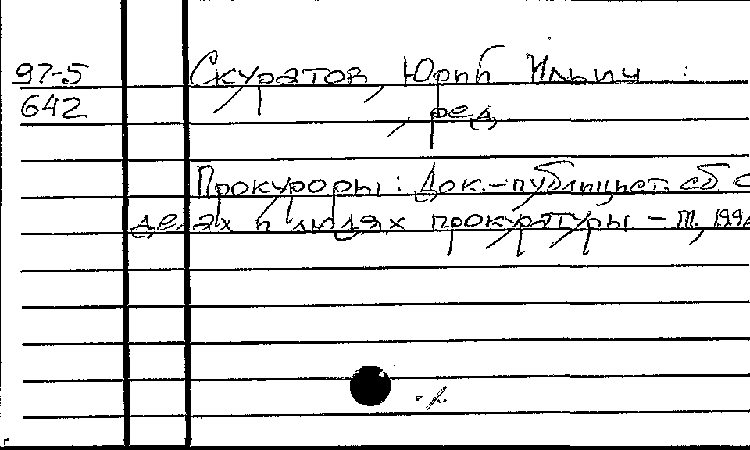 97-5 Скуратов, Юрий Ильич :
642 , ред.
Прокуроры: Док.-публицист. сб
делах и людях прокуратуры – М., 199